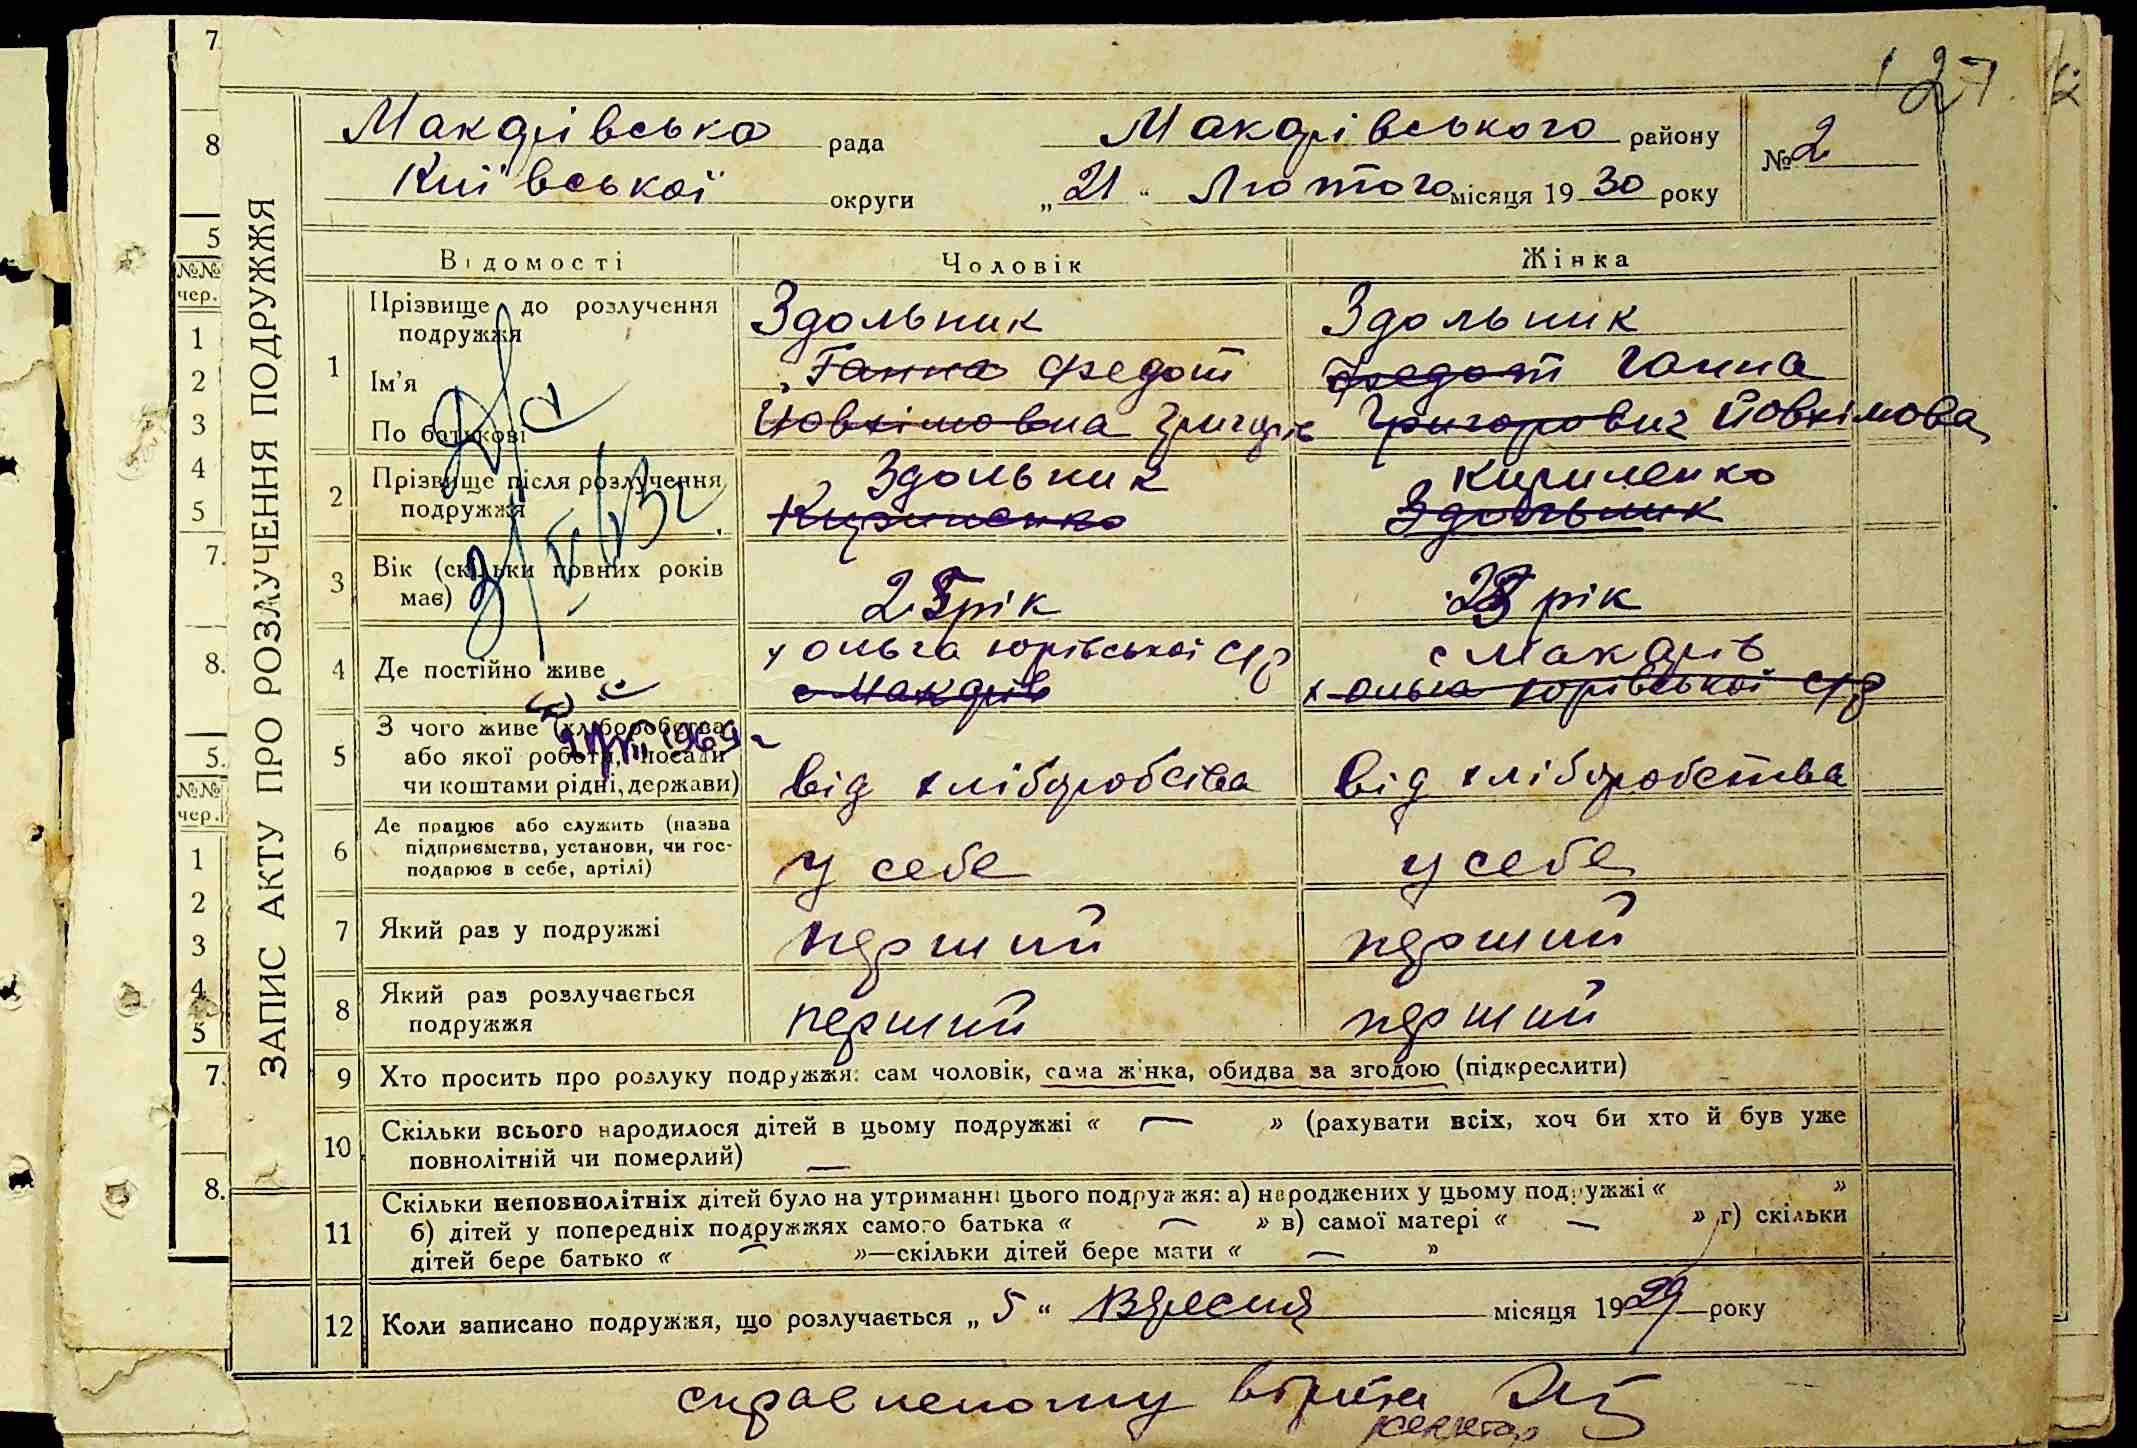 127
Макарівська рада Макарівського району № 2
Київської округи „21“ Лютого місяця 1930 року
ЗАПИС АКТУ ПРО РОЗЛУЧЕННЯ ПОДРУЖЖЯ
Відомості Чоловік Жінка
1 Прізвище до розлучення подружжя Здольник Здольник
Ім'я Ганна Федот Федот Ганна
По батькові Йовхімовна Григорів Григорович Йовхімова
2 Прізвище після розлучення подружжя Здольник Кириленко
Кириленко Здольник
3 Вік (скільки повних років має) рік рік
4 Де постійно живе х Ольга Юрівської с/р с Макарів
с Макарів х Ольга Юрівської с/р
5 З чого живе (хліборобства
або якої роботи, посади
чи коштами рідні, держави) від хліборобства від хліборобства
1969
6 Де працює або служить (назва
підприємства, установи, чи гос-
подарює в себе, артілі) у себе у себе
7 Який раз у подружжі перший перший
8 Який раз розлучається
подружжя перший перший
9 Хто просить про розлуку подружжя: сам чоловік, сама жінка, обидва за згодою (підкреслити)
10 Скільки всього народилося дітей в цьому подружжі « — » (рахувати всіх, хоч би хто й був уже
повнолітній чи померлий) —
11 Скільки неповнолітніх дітей було на утриманні цього подружжя: а) народжених у цьому подружжі « »
б) дітей у попередніх подружжях самого батька « — » в) самої матері « — » г) скільки
дітей бере батько « — »—скільки дітей бере мати « — »
12 Коли записано подружжя, що розлучається „5“ Вересня місяця 1929 року
справленому вірити
7.
8
5
№№
чер.
1
2
3
4
5
7.
8.
5.
№№
чер.
1
2
3
4
5
7.
8.